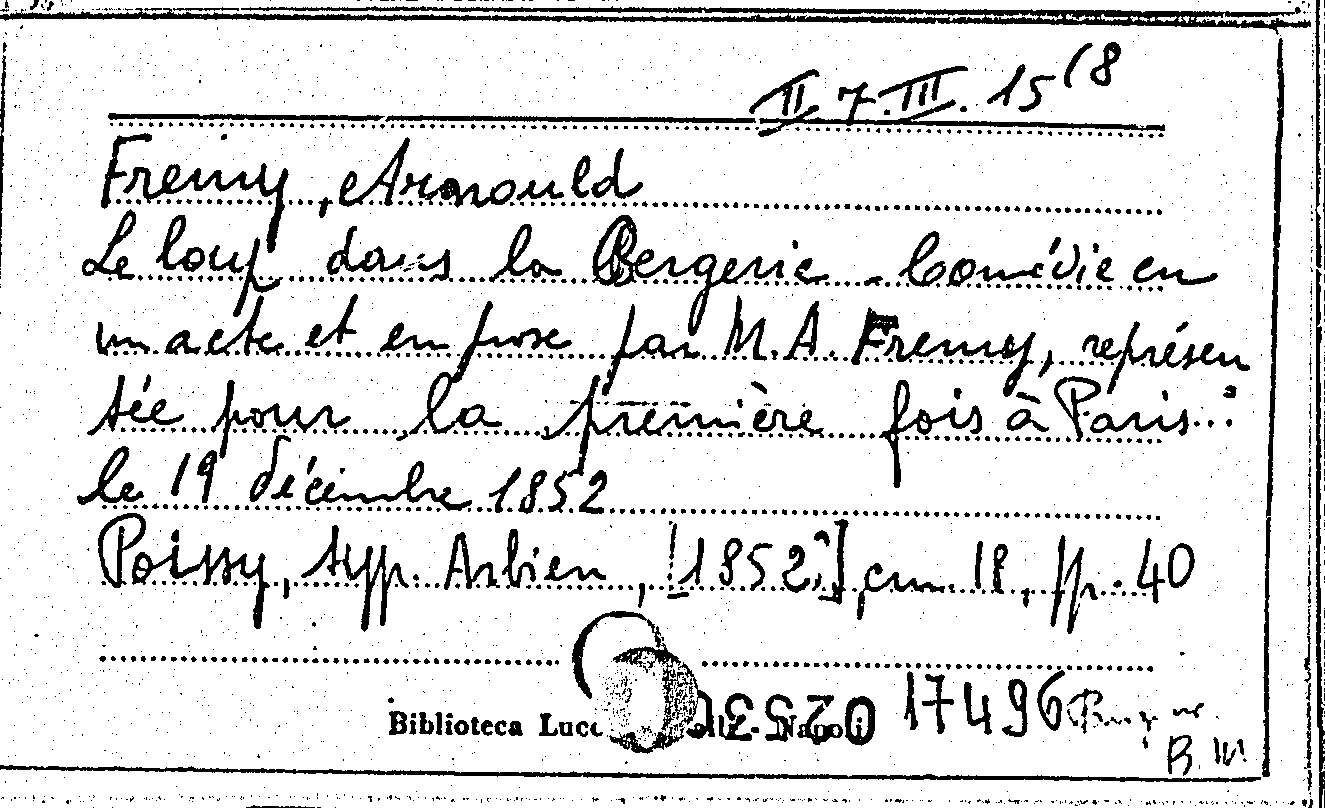 II.7.III.15(8
Fremy, Arnould
Le loup dans la Bergerie - Comédie en
un acte et en prose par M. A. Fremy, représen
tée pour la première fois à Paris...
le 19 décembre 1852
Poissy, typ. Arbieu, [1852?], cm. 18, pp. 40
Biblioteca Napoli 17496